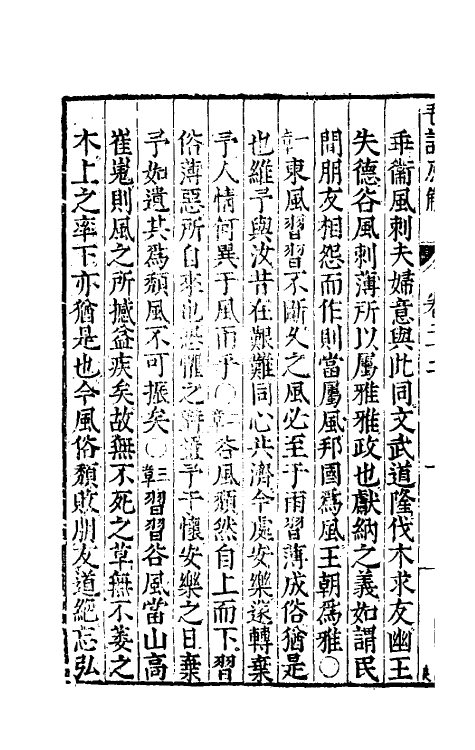 毛詩原解　卷二十二
乖衞風刺夫婦意與此同文武道隆伐木求友幽王
失德谷風刺薄所以屬雅雅政也獻納之義如謂民
間朋友相怨而作則當屬風邦國爲風王朝爲雅○
一章東風習習不斷久之風必至于雨習薄成俗猶是
也維予與汝昔在艱難同心共濟今處安樂遂轉棄
予人情何異于風雨乎○二章谷風頹然自上而下習
俗薄惡所自來也恐懼之時寘予于懷安樂之日棄
予如遺其爲頹風不可振矣○三章習習谷風當山高
崔嵬則風之所撼益疾矣故無不死之草無不萎之
木上之率下亦猶是也今風俗頹敗朋友道絕忘弘